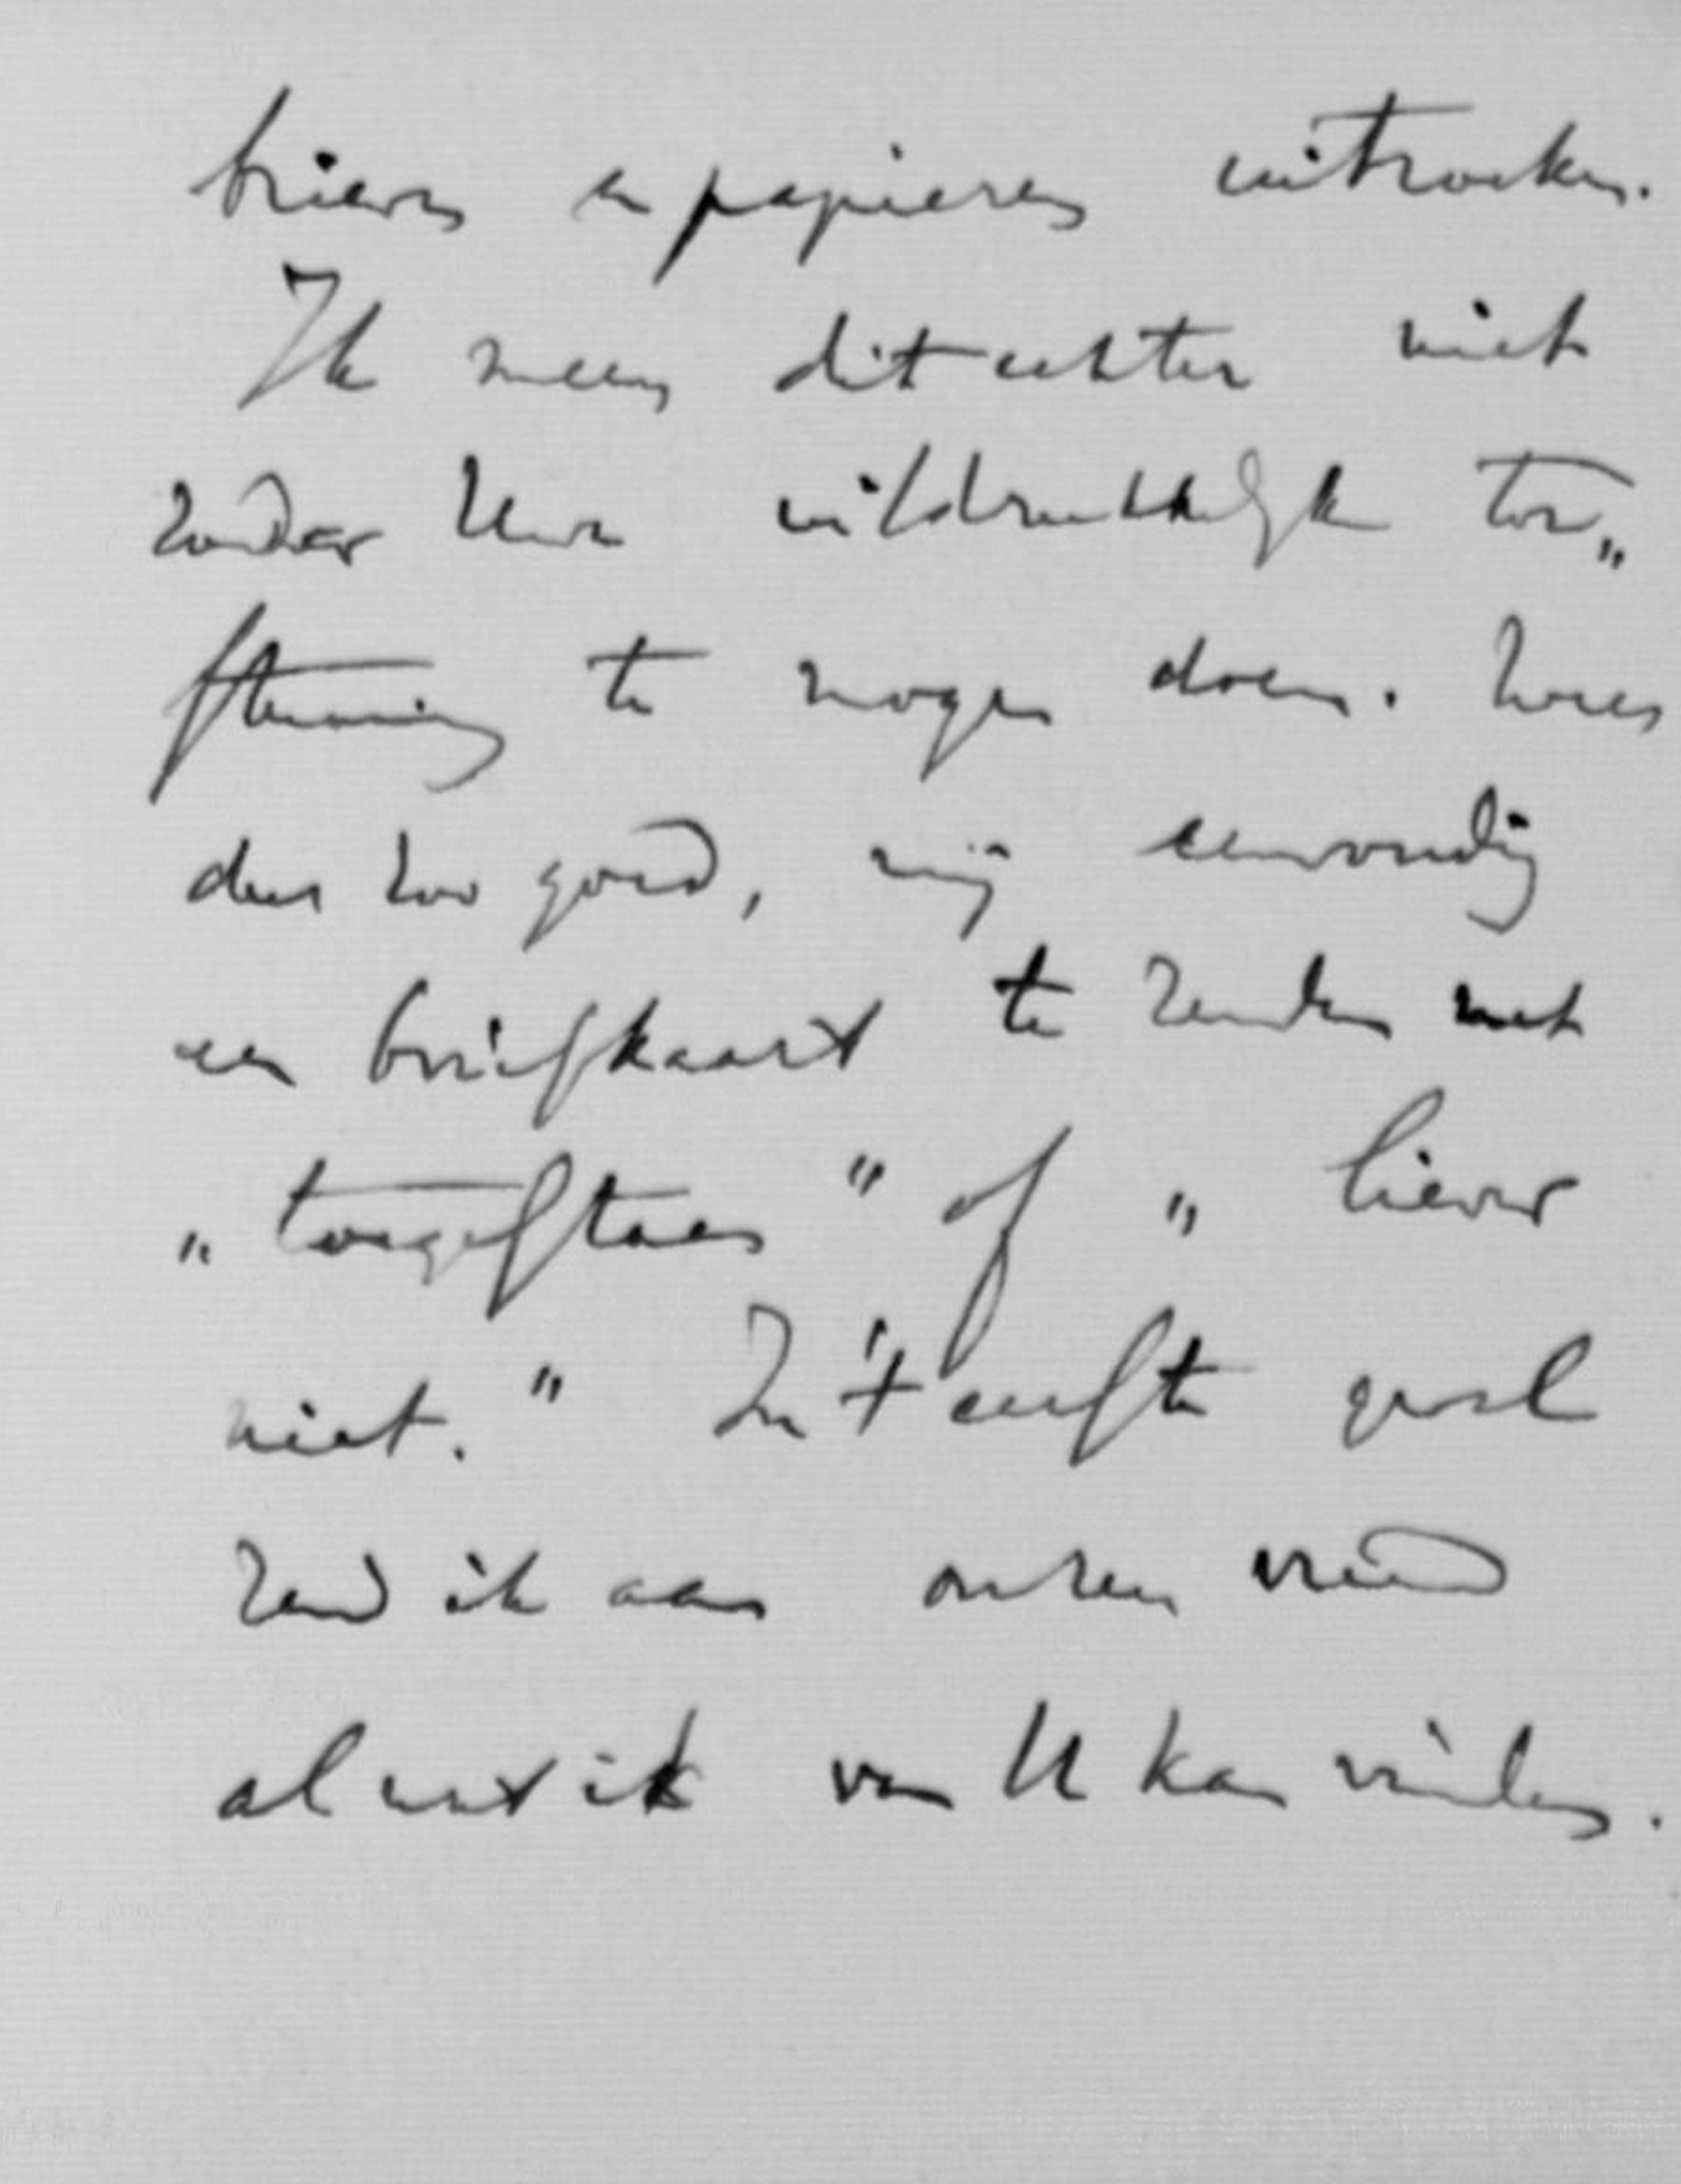 brieven en papieren uitzoeken.
Ik meen dit echter niet
zonder Uwe uitdrukkelijke toe„
stemming te mogen doen. Wees
dus zoo goed, mij eenvoudig
een briefkaart te zenden met
„toegestaan” of „liever
niet.” In 't eerste geval
zend ik aan onzen vriend
al wat ik van U kan vinden.